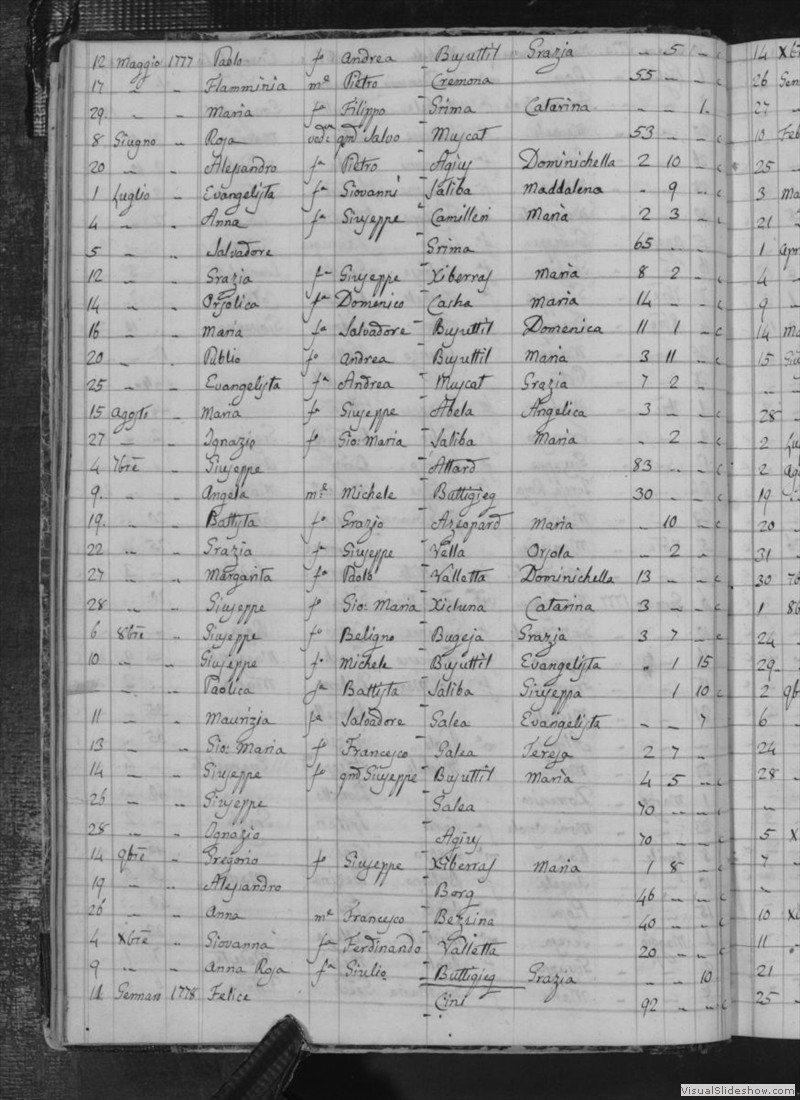 12 Maggio 1777 Paolo fo Andrea Bujuttil Grazia – 5 – c
17 " – Flamminia me Pietro Cremona 55 – –
29. " – Maria fa Filippo Grima Catarina – – 1.
8 Giugno – Roja ved: qm Salvo Muscat 53 – – c
20 " – Alessandro fo Pietro Agius Dominichella 2 10 – c
1 Luglio – Evangelista fa Giovanni Saliba Maddalena – 9 – c
4 " – Anna fa Giuseppe Camilleri Maria 2 3 – c
5 " – Salvadore Grima 65 – –
12 " – Grazia fa Giuseppe Xiberras Maria 8 2 – c
14 " – Orsolica fa Domenico Casha Maria 14 – – c
16 " – Maria fa Salvadore Bujuttil Domenica 11 1 – c
20 " – Publio fo Andrea Bujuttil Maria 3 11 – c
25 " – Evangelista fa Andrea Muscat Grazia 7 2 –
15 Aggsto – Maria fa Giuseppe Abela Angelica 3 – – c
27 " – Ignazio fo Gio: Maria Saliba Maria – 2 – c
4 7bre – Giuseppe Attard 83 – – c
9. " – Angela me Michele Buttigieg 30 – – c
19. " – Battista fo Grazio Azzopard Maria – 10 – c
22 " – Grazia fa Giuseppe Vella Orsola – 2 –
27 " – Margarita fa Paolo Valletta Dominichella 13 – – c
28 " – Giuseppe fo Gio: Maria Xicluna Catarina 3 – – c
6 8bre – Giuseppe fo Beligno Bugeja Grazia 3 7 – c
10 " – Giuseppe fo Michele Bujuttil Evangelista – 1 15
" – Paolica fa Battista Saliba Giuseppa 1 10 c
11 " – Maurizia fa Salvadore Galea Evangelista – – 7
13 " – Gio: Maria fo Francesco Galea Teresa 2 7 –
14 " – Giuseppe fo qm Giuseppe Bujuttil Maria 4 5 – c
26 " – Giuseppe Galea 70 – – c
28 " – Ignazio Agius 70 – – c
14 9bre – Gregorio fo Giuseppe Xiberras Maria 1 8 – c
19 " – Alessandro Borg 46 – – c
26 " – Anna me Francesco Bezzina 40 – – c
4 Xbre – Giovanna fa Ferdinando Valletta 20 – – c
9 " – Anna Roja fa Giulio Buttigieg Grazia – – 10
11. Gennaro 1778 Felice Cini 92 – – c
14 Xb
26 Gen
27 –
10 Feb
25 –
3 Ma
21 –
1 Apr
4 –
9 –
14 Ma
15 Giu
28 –
2 Lu
2 Ag
19 –
20 –
31 –
30 7b
1 8b
24 –
29 –
2 9b
6 –
24 –
28 –
5 X
7 –
10 X
11 –
21 –
25 –
VisualSlideshow.com